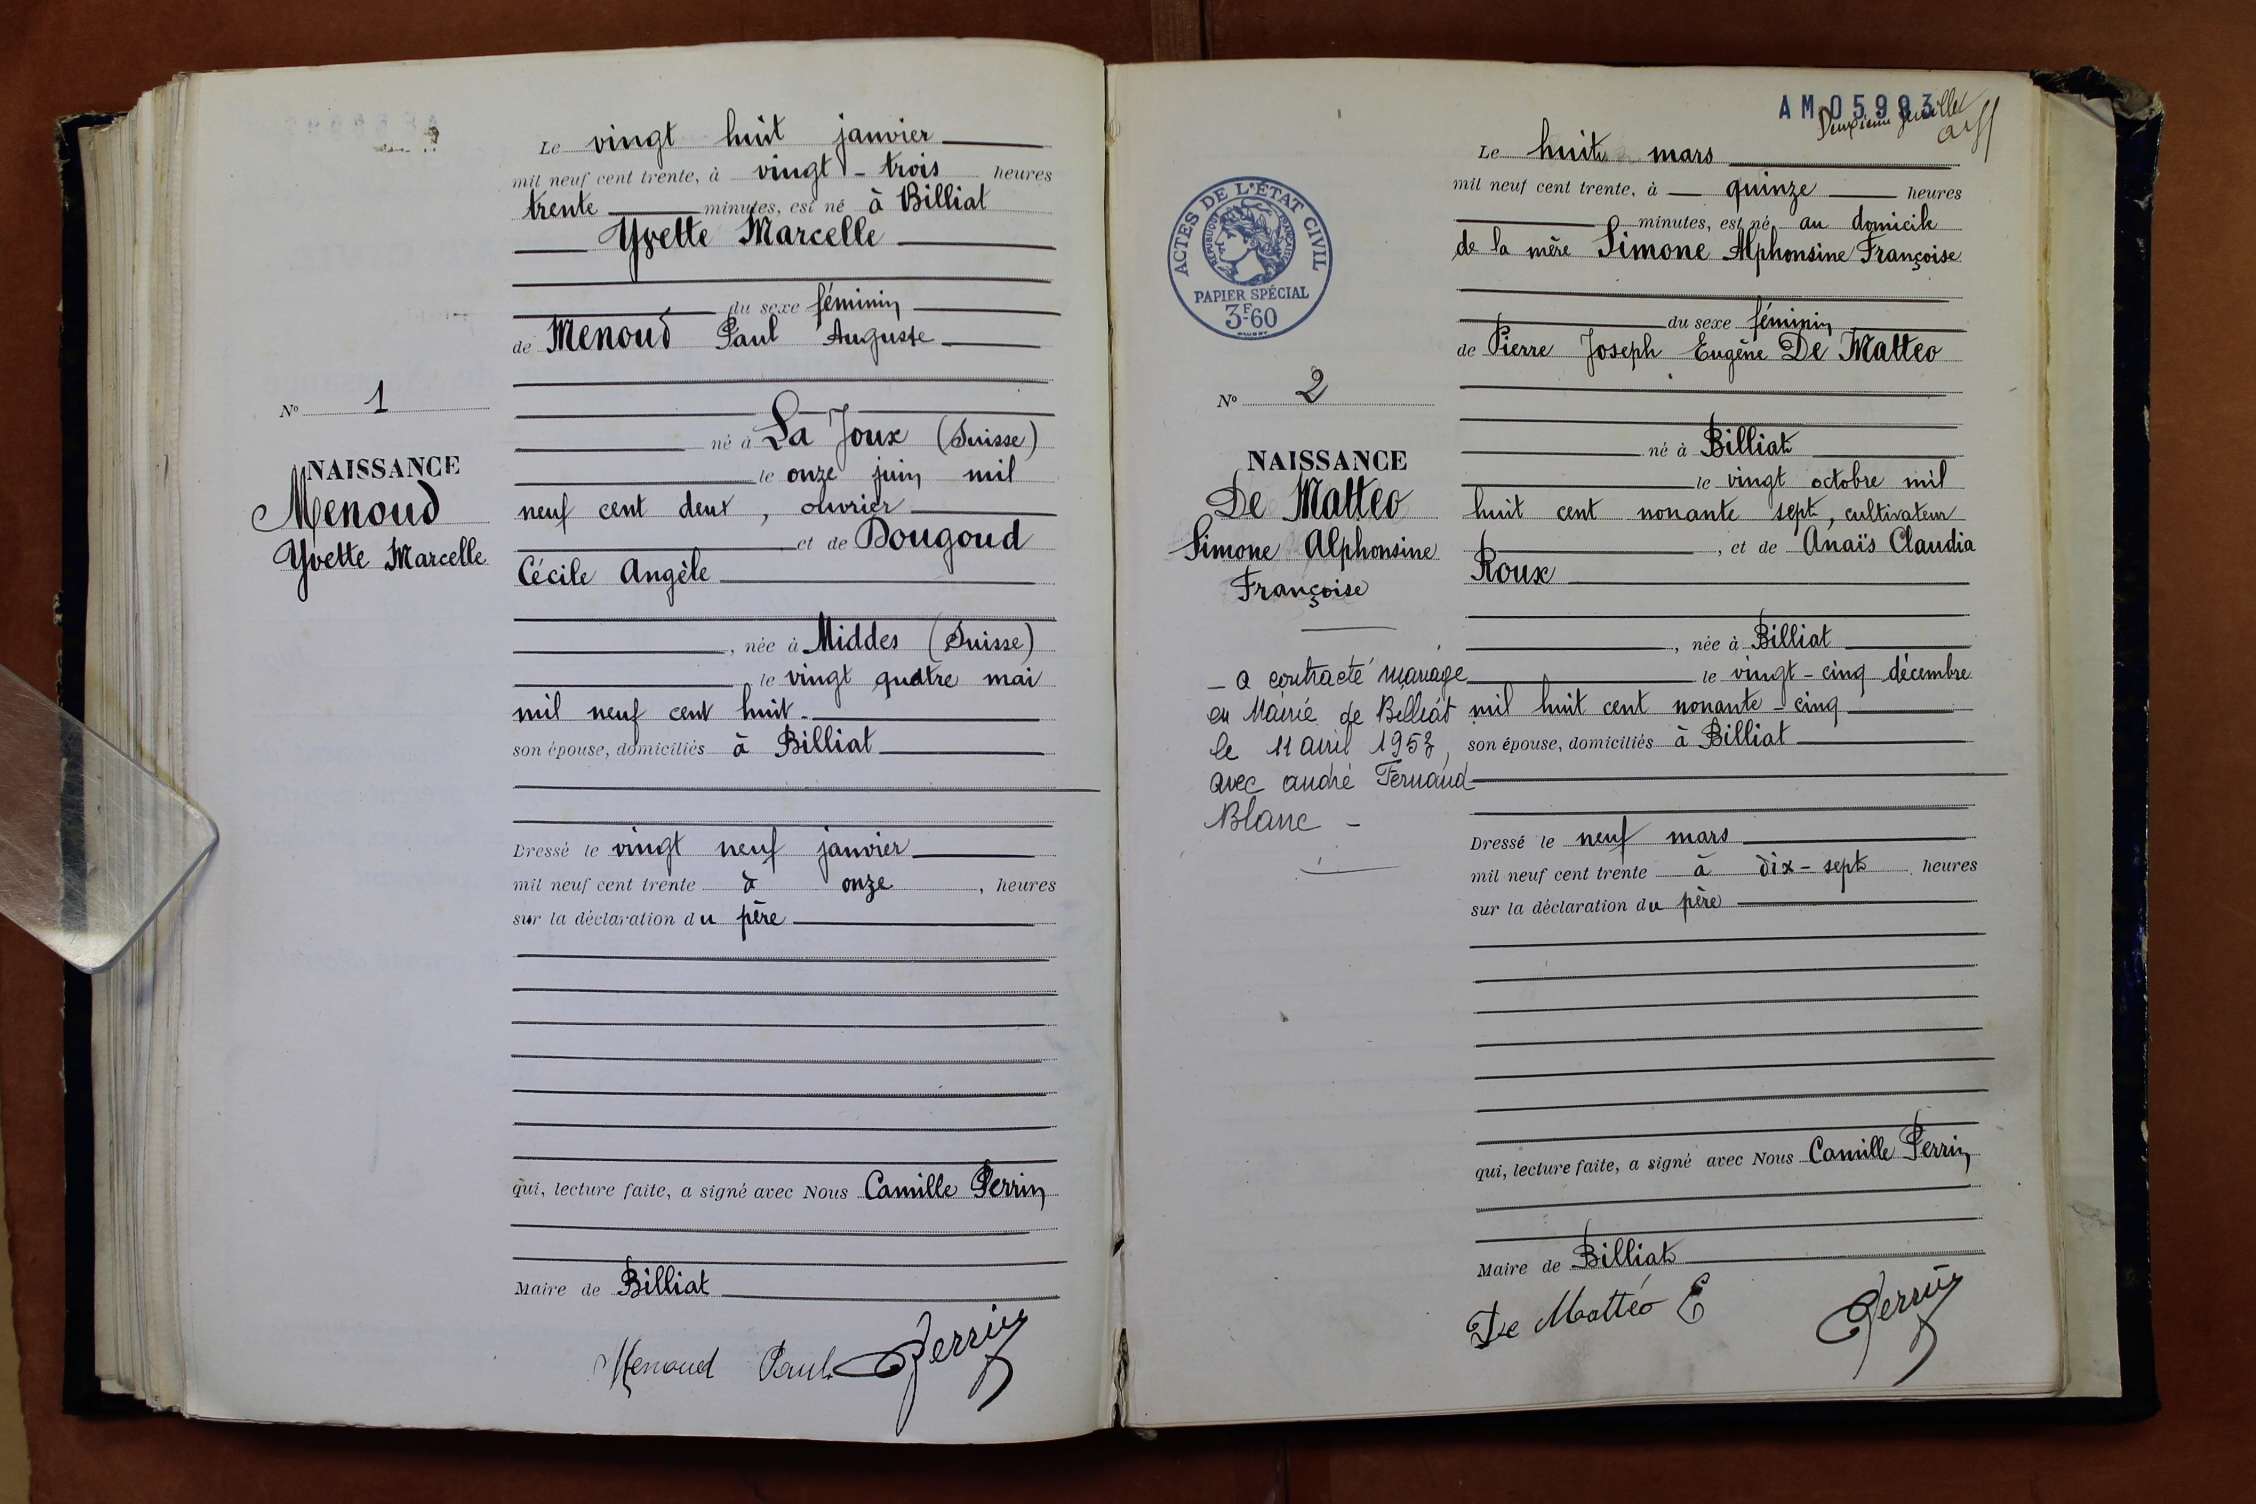 Le vingt huit janvier
mil neuf cent trente, à vingt - trois heures
trente minutes, est né à Billiat
Yvette Marcelle
du sexe féminin
de Menoud Paul Auguste
né à La Joux (Suisse)
le onze juin mil
neuf cent deux, ouvrier
et de Dougoud
Cécile Angèle
, née à Middes (Suisse)
le vingt quatre mai
mil neuf cent huit.
son épouse, domiciliés à Billiat
Dressé le vingt neuf janvier
mil neuf cent trente à onze, heures
sur la déclaration du père
qui, lecture faite, a signé avec Nous Camille Perrin
Maire de Billiat
Menoud Paul Perrin
N° 1
NAISSANCE
Menoud
Yvette Marcelle
AM 05993
Deuxième feuillet
ACTES DE L'ÉTAT CIVIL
RÉPUBLIQUE FRANÇAISE
PAPIER SPÉCIAL
3F60
N° 2
NAISSANCE
De Matteo
Simone Alphonsine
Françoise
- a contracté mariage
en Mairie de Billiat
le 11 avril 1953,
avec André Fernand
Blanc -
Le huit mars
mil neuf cent trente, à quinze heures
minutes, est né au domicile
de la mère Simone Alphonsine Françoise
du sexe féminin
de Pierre Joseph Eugène De Matteo
né à Billiat
le vingt octobre mil
huit cent nonante sept, cultivateur
, et de Anaïs Claudia
Roux
, née à Billiat
le vingt - cinq décembre
mil huit cent nonante - cinq
son épouse, domiciliés à Billiat
Dressé le neuf mars
mil neuf cent trente à dix - sept heures
sur la déclaration du père
qui, lecture faite, a signé avec Nous Camille Perrin
Maire de Billiat
De Mattéo E Perrin